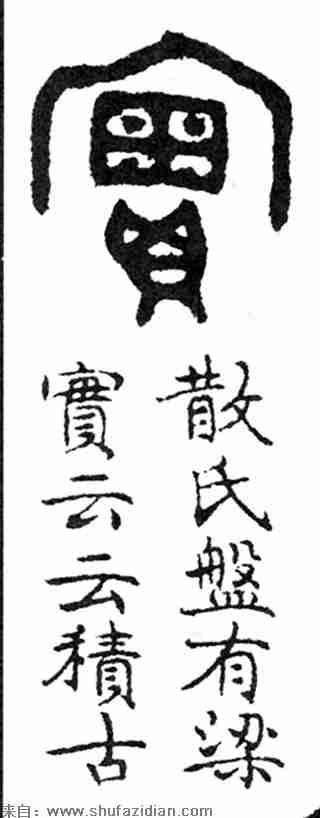 實
散氏盤有梁
實云云積古
来自：www.shufazidian.com